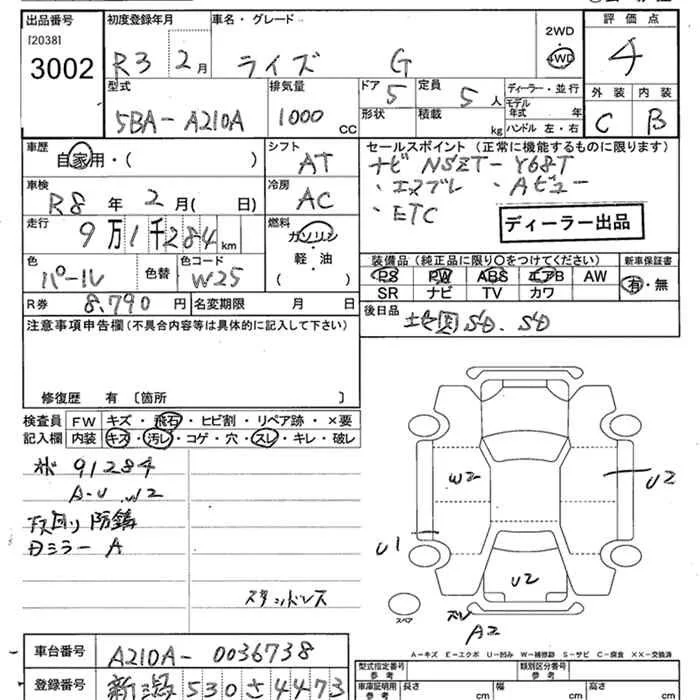 出品番号 初度登録年月 車名・グレード 2WD 評価点
[2038] 4WD
3002 R3 2月 ライズ G 4
型式 排気量 ドア 定員 ディーラー・並行 外装 内装
5BA-A210A 1000 CC 5 5人 モデル年式 年 C B
形状 積載 kg ハンドル 左・右
車歴 シフト セールスポイント (正常に機能するものに限ります)
自家用・( ) AT ナビ NSZT-Y68T
車検 冷房 ・エスプレ ・Aビュー
R8年 2月( 日) AC ・ETC
走行 燃料 ディーラー出品
9万1千284km ガソリン
軽・油
( )
色 色替 色コード 装備品 (純正品に限り○をつけてください) 新車保証書
パール W25 PS PW ABS エアB AW 有・無
SR ナビ TV カワ
R券 8,790円 名変期限 月 日 後日品
地図SD、SD
注意事項申告欄(不具合内容等は具体的に記入して下さい)
修復歴 有 〔箇所 〕
検査員 FW キズ・飛石・ヒビ割・リペア跡・×要
記入欄 内装 キズ・汚レ・コゲ・穴・スレ・キレ・破レ
91284
A-U W2
下回り防錆
ミラー A
スタッドレス
W2
U2
U1
U2
スペア
スレ
A2
A-キズ E-エクボ U-凹み W-補修跡 S-サビ C-腐食 XX-交換済
車台番号 A210A-0036738
型式指定番号 参考 類別区分番号 参考
登録番号 新潟 530 さ 4473
車庫証明用 参考 長さ cm 幅 cm 高さ cm